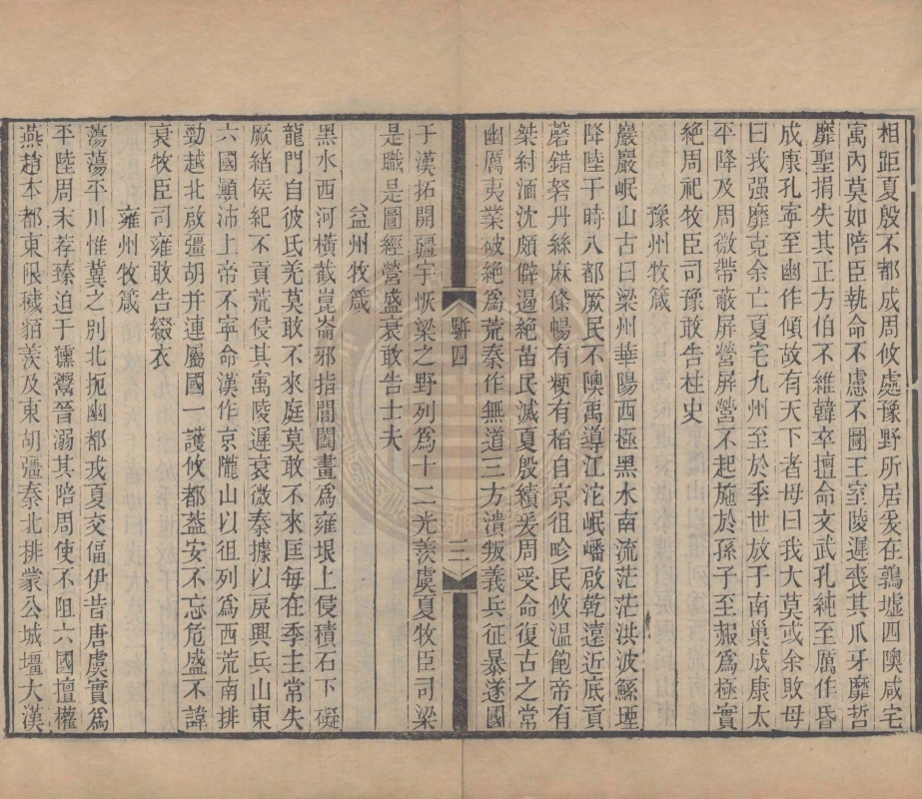 相距夏殷不都成周攸處豫野所居爰在鶉墟四隩咸宅
寓內莫如陪臣執命不慮不圖王室陵遲喪其爪牙靡哲
靡聖捐失其正方伯不維韓卒擅命文武孔純至厲作昏
成康孔寧至幽作傾故有天下者毋曰我大莫或余敗毋
曰我强靡克余亡夏宅九州至於季世放于南巢成康太
平降及周微帶蔽屏營屏營不起施於孫子至赧爲極實
絶周祀牧臣司豫敢告柱史
豫州牧箴
巖巖岷山古曰梁州華陽西極黑水南流茫茫洪波鯀堙
降陸于時八都厥民不隩禹導江沱岷嶓啟乾遠近底貢
磬錯砮丹絲麻條暢有粳有稻自京徂畛民攸溫飽帝有
桀紂湎沈頗僻遏絶苗民滅夏殷績爰周受命復古之常
幽厲夷業破絶爲荒秦作無道三方潰叛義兵征暴遂國
于漢拓開疆宇恢梁之野列爲十二光羨虞夏牧臣司梁
是職是圖經營盛衰敢告士夫
益州牧箴
黑水西河橫截崑崙邪指閶闔畫爲雍垠上侵積石下礙
龍門自彼氐羌莫敢不來庭莫敢不來匡每在季主常失
厥緒侯紀不貢荒侵其寓陵遲衰微秦據以戾興兵山東
六國顛沛上帝不寧命漢作京隴山以徂列爲西荒南排
勁越北啟彊胡并連屬國一護攸都葢安不忘危盛不諱
衰牧臣司雍敢告綴衣
雍州牧箴
蕩蕩平川惟冀之別北扼幽都戎夏交偪伊昔唐虞實爲
平陸周末荐臻迫于獯鬻晉溺其陪周使不阻六國擅權
燕趙本都東限穢貊羨及東胡彊秦北排蒙公城壃大漢
駢四
二